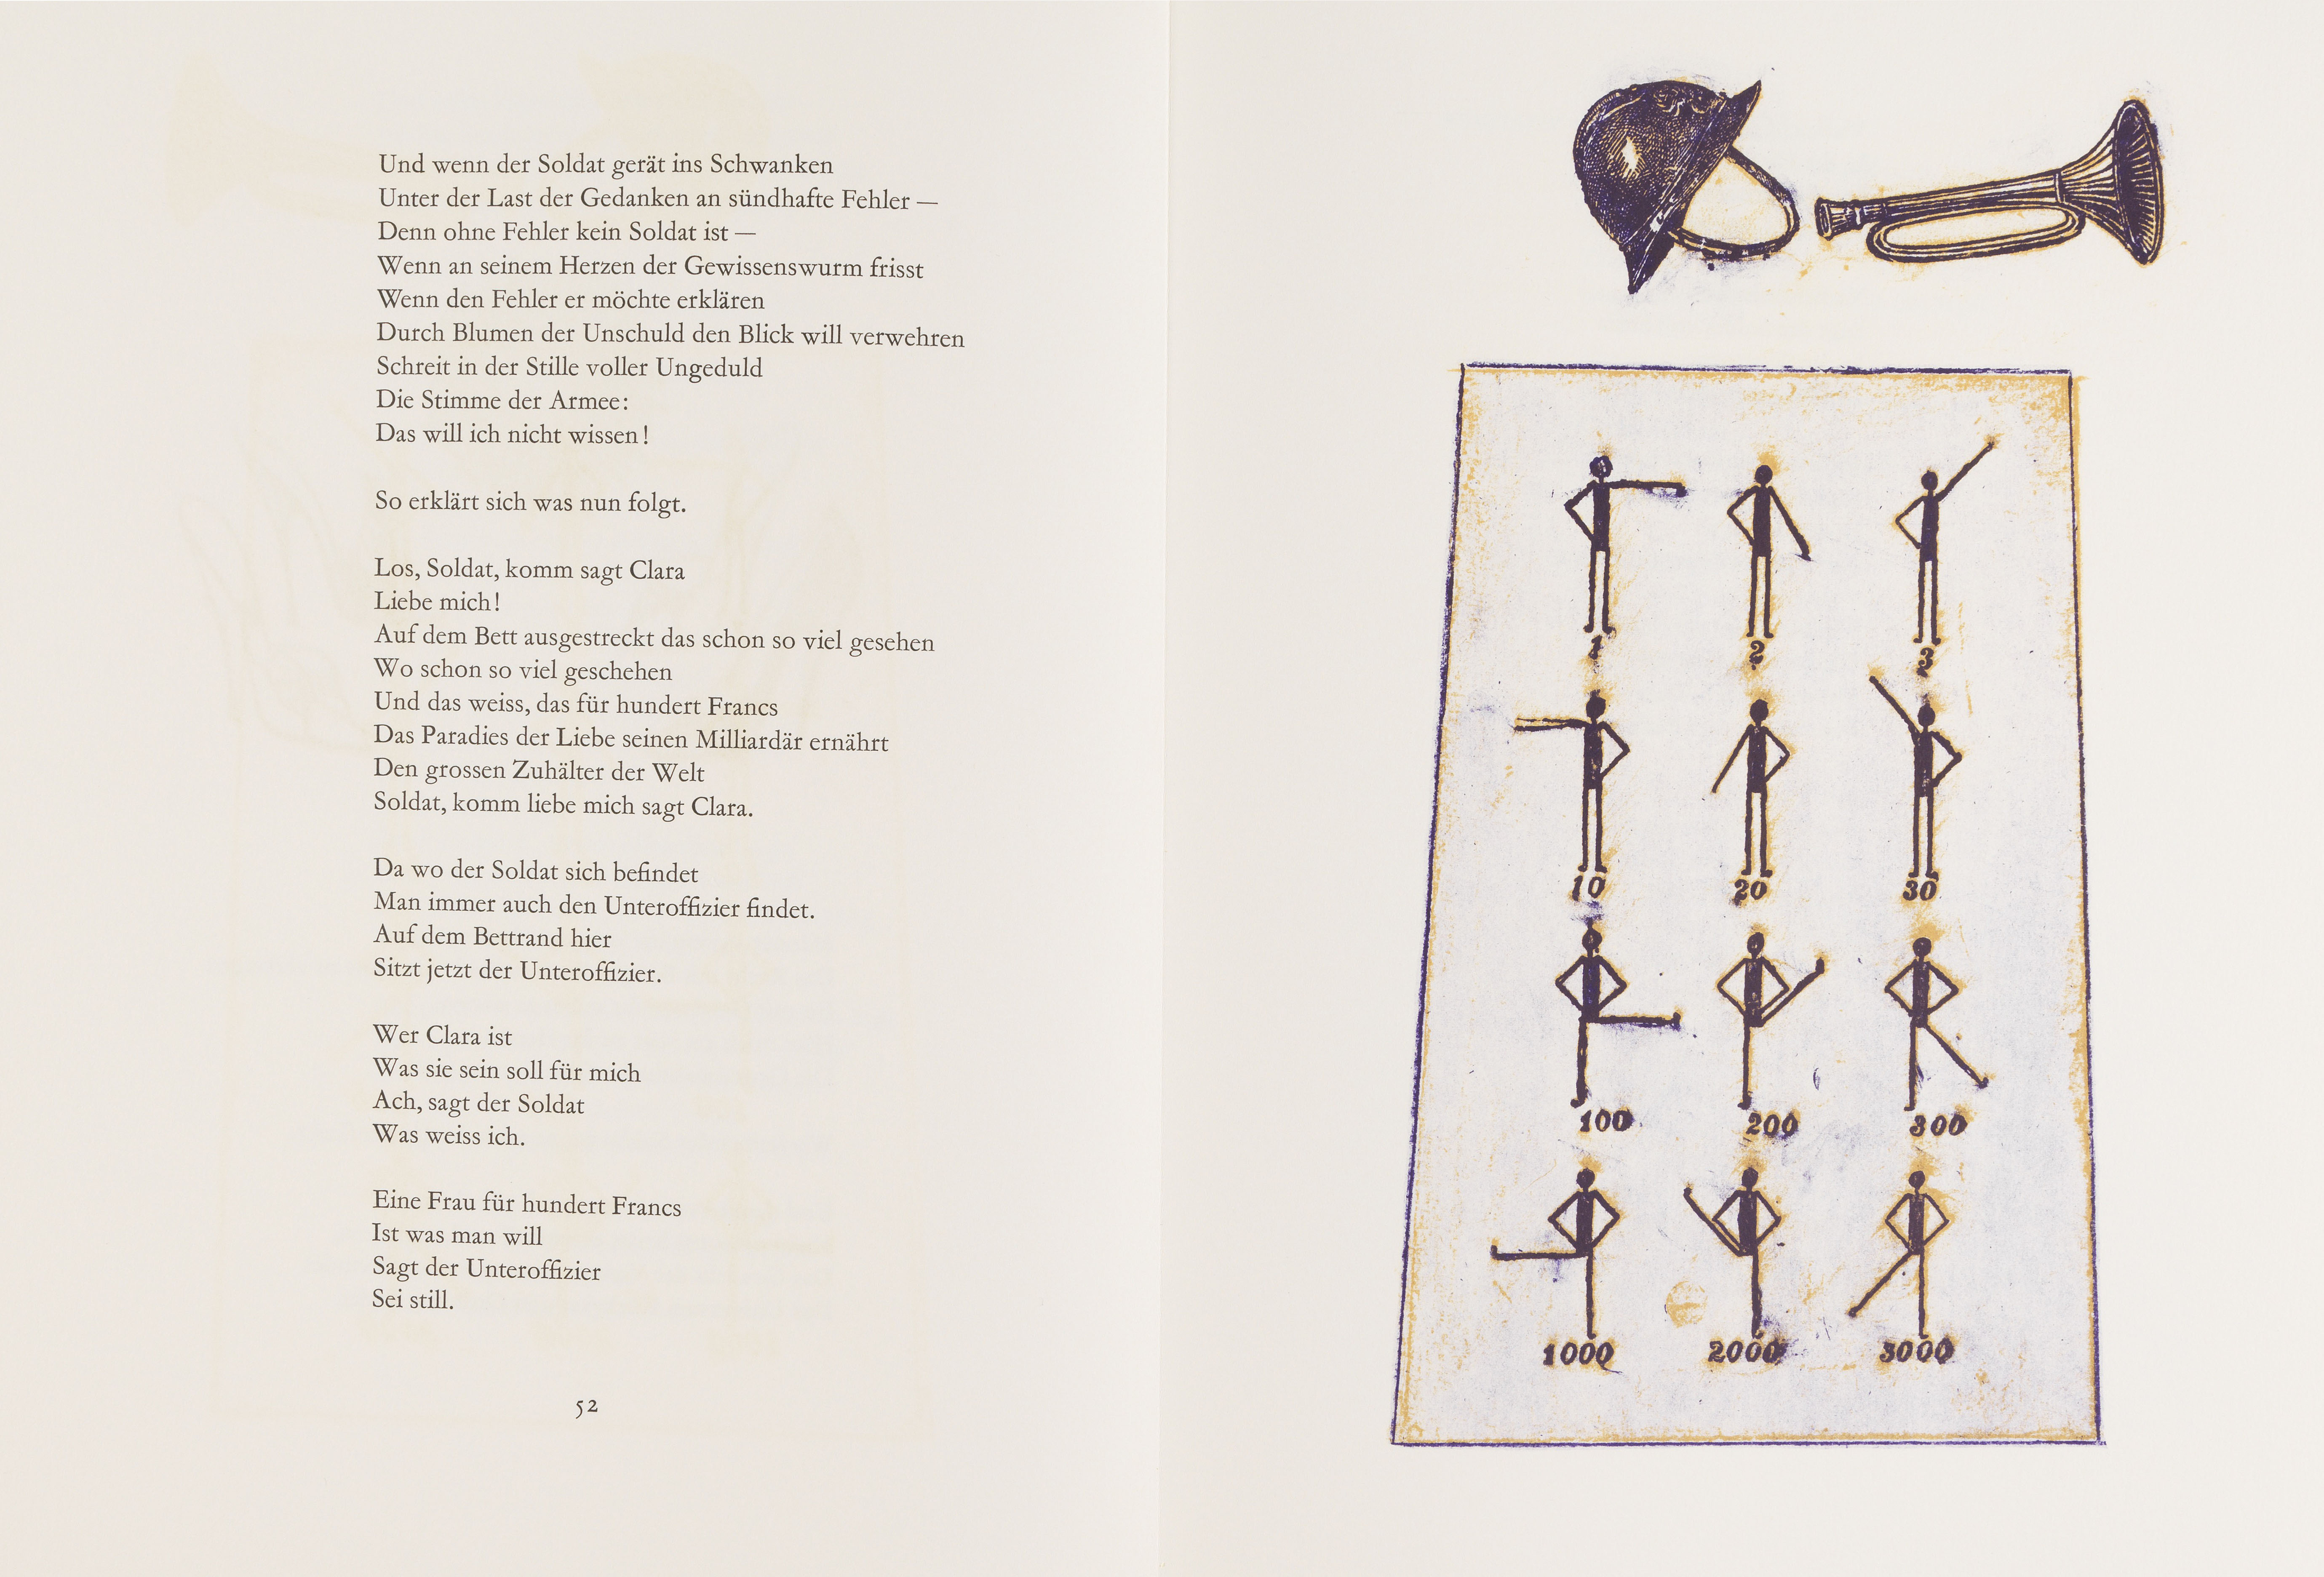 Und wenn der Soldat gerät ins Schwanken
Unter der Last der Gedanken an sündhafte Fehler —
Denn ohne Fehler kein Soldat ist —
Wenn an seinem Herzen der Gewissenswurm frisst
Wenn den Fehler er möchte erklären
Durch Blumen der Unschuld den Blick will verwehren
Schreit in der Stille voller Ungeduld
Die Stimme der Armee:
Das will ich nicht wissen!

So erklärt sich was nun folgt.

Los, Soldat, komm sagt Clara
Liebe mich!
Auf dem Bett ausgestreckt das schon so viel gesehen
Wo schon so viel geschehen
Und das weiss, das für hundert Francs
Das Paradies der Liebe seinen Milliardär ernährt
Den grossen Zuhälter der Welt
Soldat, komm liebe mich sagt Clara.

Da wo der Soldat sich befindet
Man immer auch den Unteroffizier findet.
Auf dem Bettrand hier
Sitzt jetzt der Unteroffizier.

Wer Clara ist
Was sie sein soll für mich
Ach, sagt der Soldat
Was weiss ich.

Eine Frau für hundert Francs
Ist was man will
Sagt der Unteroffizier
Sei still.

52

1 2 3
10 20 30
100 200 300
1000 2000 3000